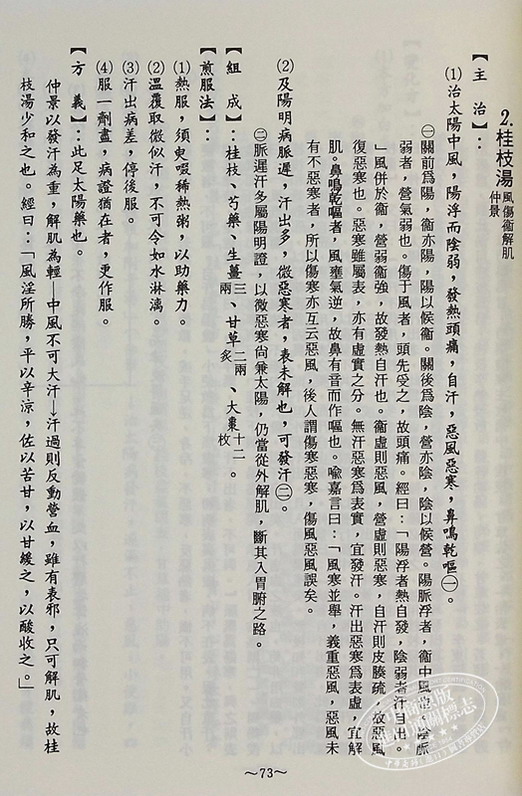 2.桂枝湯 風傷衞解肌 仲景
【主 治】：
⑴治太陽中風，陽浮而陰弱，發熱頭痛，自汗，惡風惡寒，鼻鳴乾嘔㊀。
㊀關前爲陽，衞亦陽，陽以候衞。關後爲陰，營亦陰，陰以候營。陽脈浮者，衞中風也。陰脈
弱者，營氣弱也。傷于風者，頭先受之，故頭痛。經曰：「陽浮者熱自發，陰弱者汗自出。
」風併於衞，營弱衞強，故發熱自汗也。衞虛則惡風，營虛則惡寒，自汗則皮腠疏，故惡風
復惡寒也。惡寒雖屬表，亦有虛實之分。無汗惡寒爲表實，宜發汗。汗出惡寒爲表虛，宜解
肌。鼻鳴乾嘔者，風壅氣逆，故鼻有音而作嘔也。喩嘉言曰：「風寒並舉，義重惡風，惡風未
有不惡寒者，所以傷寒亦互云惡風，後人謂傷寒惡寒，傷風惡風誤矣。
⑵及陽明病脈遲，汗出多，微惡寒者，表未解也，可發汗㊁。
㊁脈遲汗多屬陽明證，以微惡寒尚兼太陽，仍當從外解肌，斷其入胃腑之路。
【組 成】：桂枝、芍藥、生薑三兩、甘草二兩炙、大棗十二枚。
【煎服法】：
⑴熱服，須臾啜稀熱粥，以助藥力。
⑵溫覆取微似汗，不可令如水淋漓。
⑶汗出病差，停後服。
⑷服一劑盡，病證猶在者，更作服。
【方 義】：此足太陽藥也。
仲景以發汗爲重，解肌爲輕─中風不可大汗→汗過則反動營血，雖有表邪，只可解肌，故桂
枝湯少和之也。經曰：「風淫所勝，平以辛涼，佐以苦甘，以甘緩之，以酸收之。」
～73～